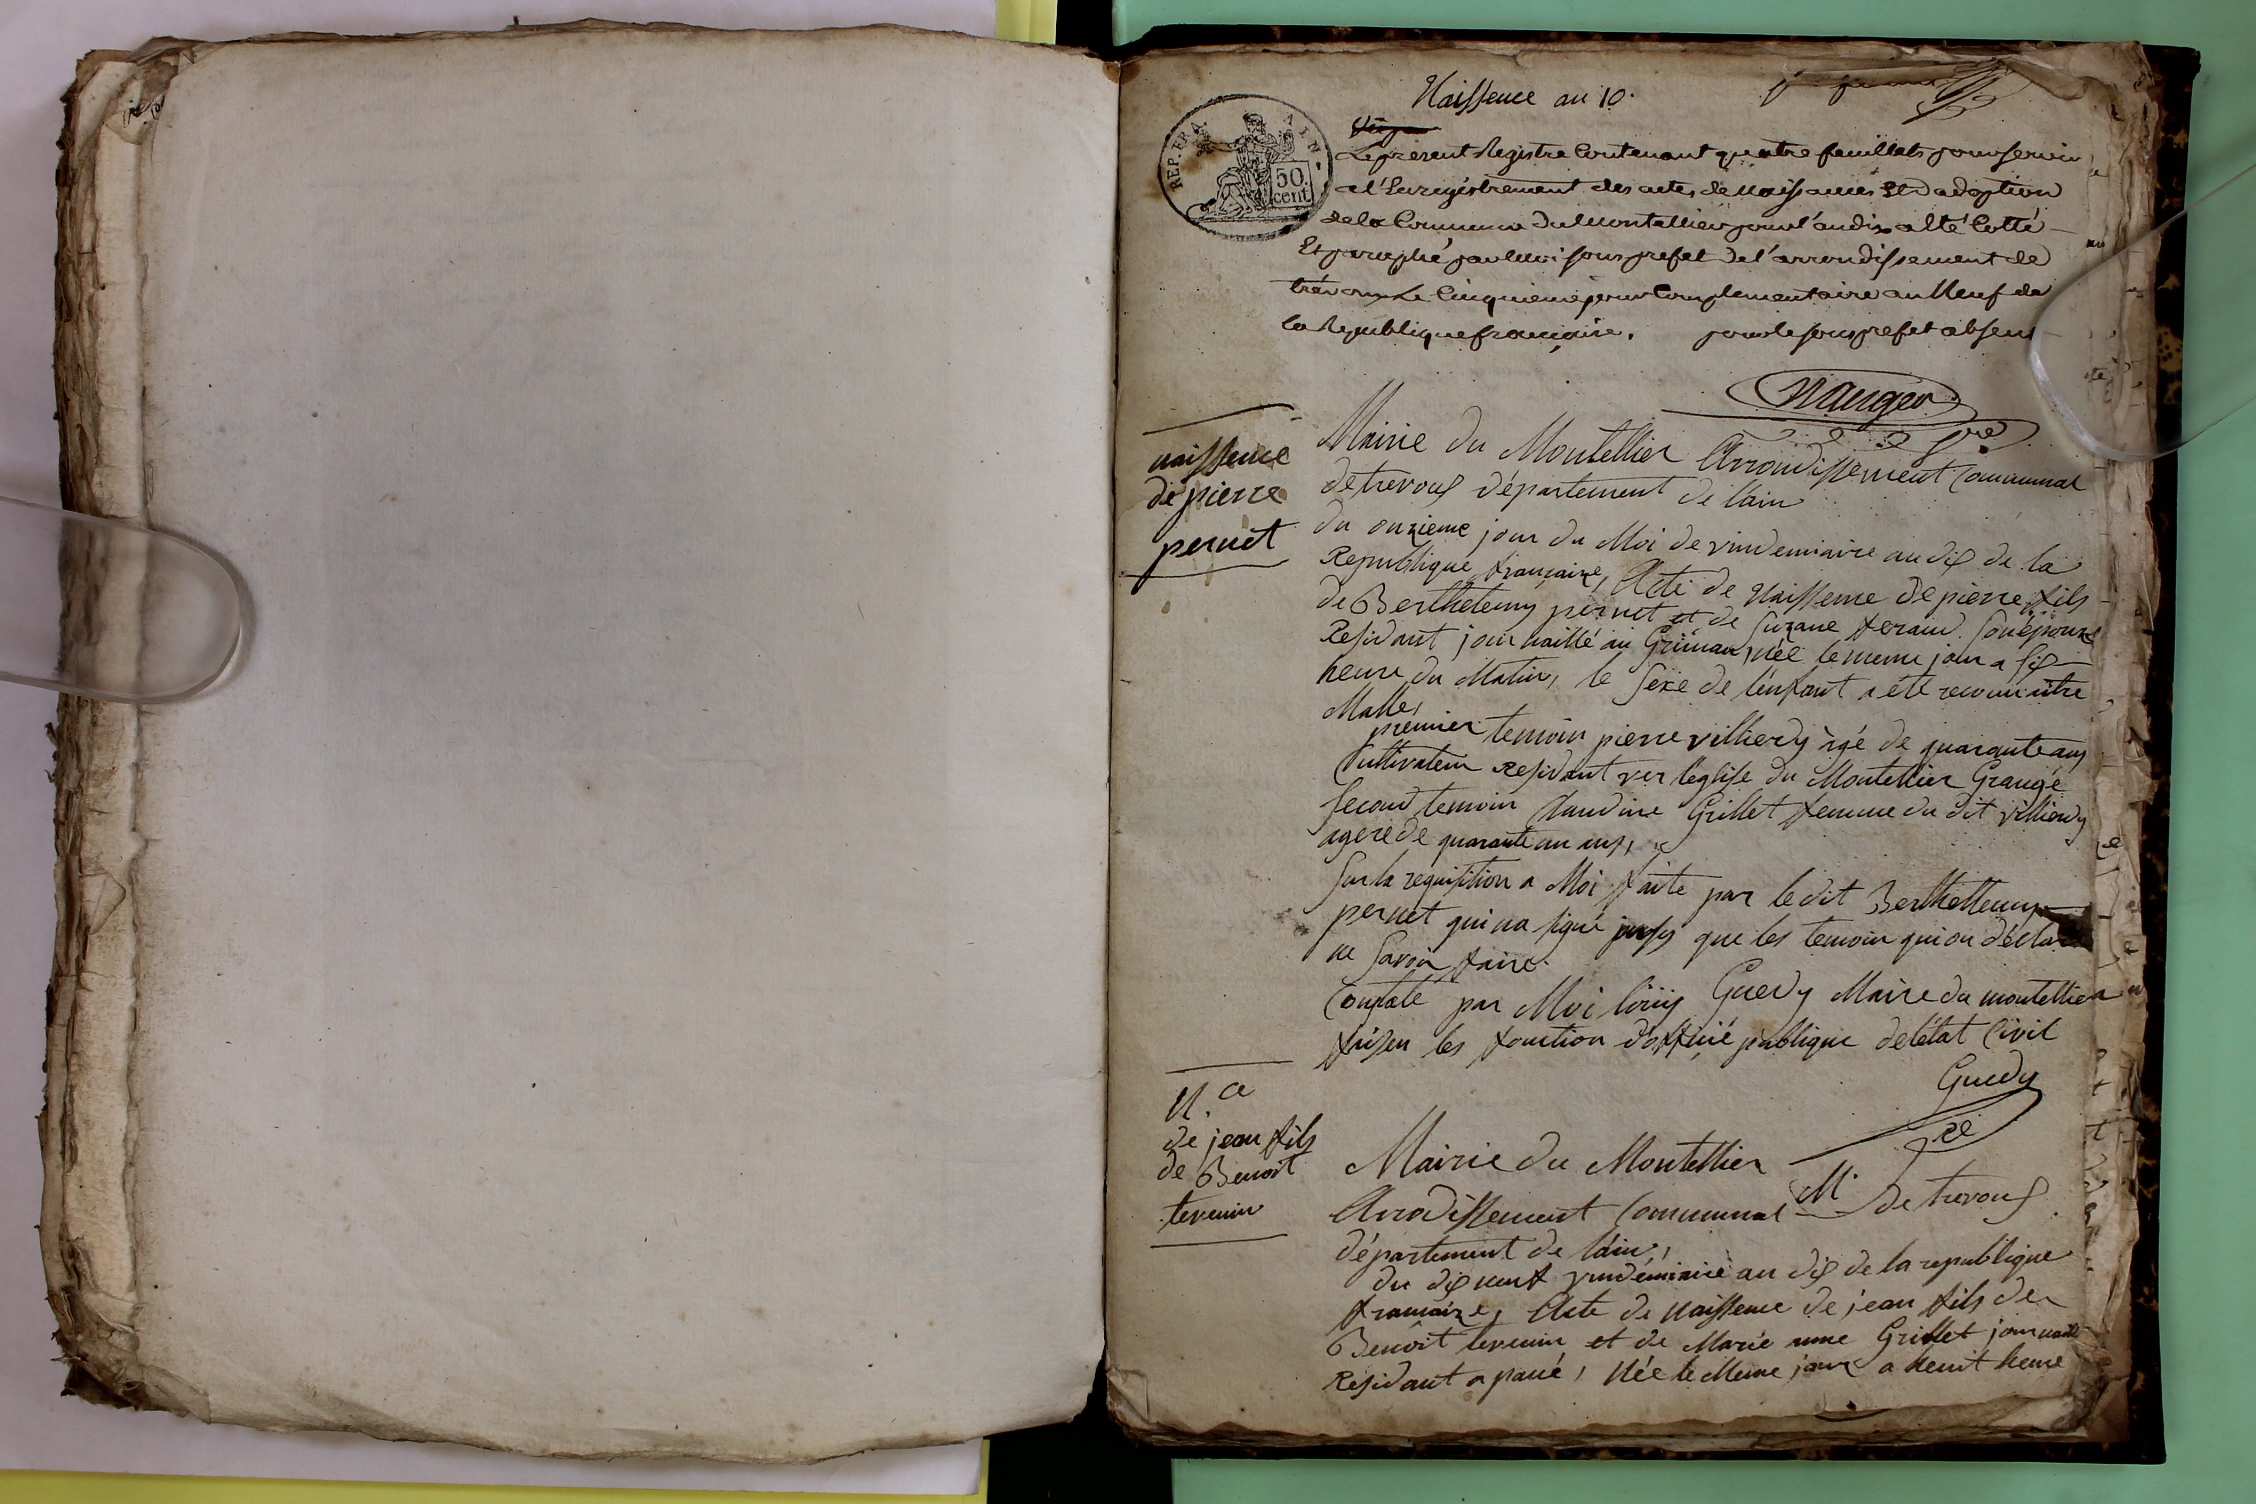 Naissence an 10.
REP. FRA. AIN.
50.
cent.
Le present Registre Contenant quatre feuillets pour servir
a l'Enregistrement des actes de Naissances Et d'adoption
de la Commune du Montellier pour l'an dix a été Cotté
Et paraphé par Moi sous prefet de l'arrondissement de
trévoux Le Cinquieme jour Complementaire an Neuf de
la Republique française. pour le sous prefet absent
naissence
de pierre
pernet
Mairie du Montellier Arrondissement Communal
de trevoux département de l'ain
du onzieme jour du Moi de vindemiaire an dix de la
Republique française, Acte de Naissence de pierre fils
de Berthelemy pernet et de suzane feraud son épouze
Residant journaillé au Grimau, née le meme jour a six
heure du Matin, le sexe de l'enfant a été reconnu être
Malle,
premier temoin pierre villierdy agé de quarante ans
Cultivateur residant ver l'eglise du Montellier Grangé
second temoin Claudine Grillet femme du dit villierdy
agere de quarante un ans,
sur la requisition a Moi faite par le dit Berthellemy
pernet qui na signé que les temoin qui on déclaré
ne savoir faire.
Constaté par Moi Loüis Guedy Maire du montellier
faisen les fonction d'officié publique de l'état Civil
Guedy
N.ce
de jean fils
de Benoit
tevenin
Mairie du Montellier
Arrodissement Communal de trevoux
département de l'ain,
du dix neuf vindémiaire an dix de la republique
francaize, Acte de Naissence de jean fils de
Benoît tevenin et de Marie Grillet journaillé
Residant a , Née le Meme jour a heuit heure